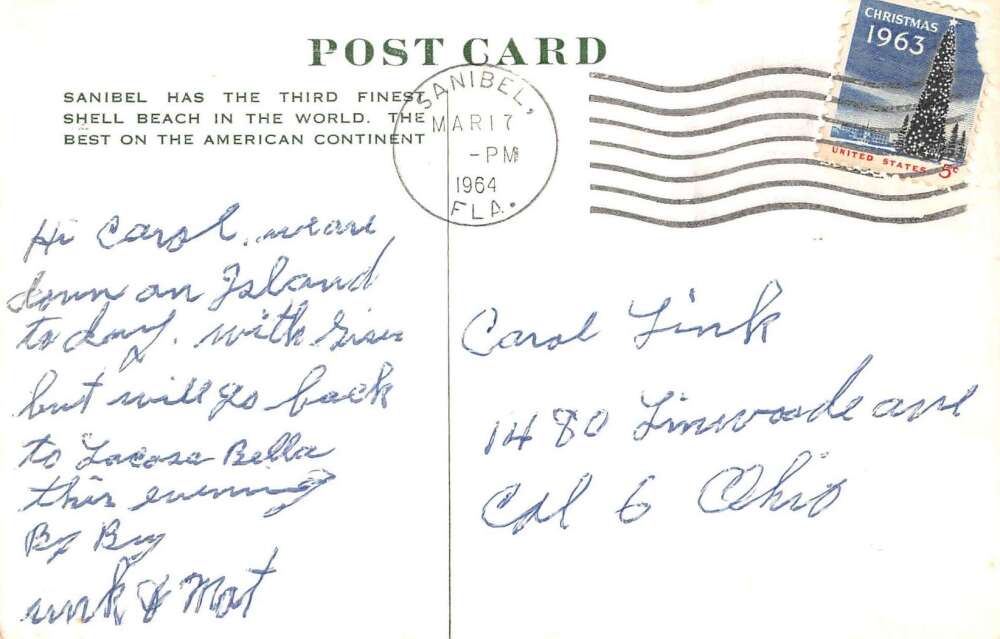 POST CARD
SANIBEL HAS THE THIRD FINEST
SHELL BEACH IN THE WORLD. THE
BEST ON THE AMERICAN CONTINENT
SANIBEL,
MAR 17
-PM
1964
FLA.
CHRISTMAS
1963
UNITED STATES 5¢
Hi Carol. we are
down on Island
to day. with
but will go back
to Lacasa Bella
this evening
By By
unk & Mat
Carol Link
1480 Linwoode ave
Col 6 Ohio